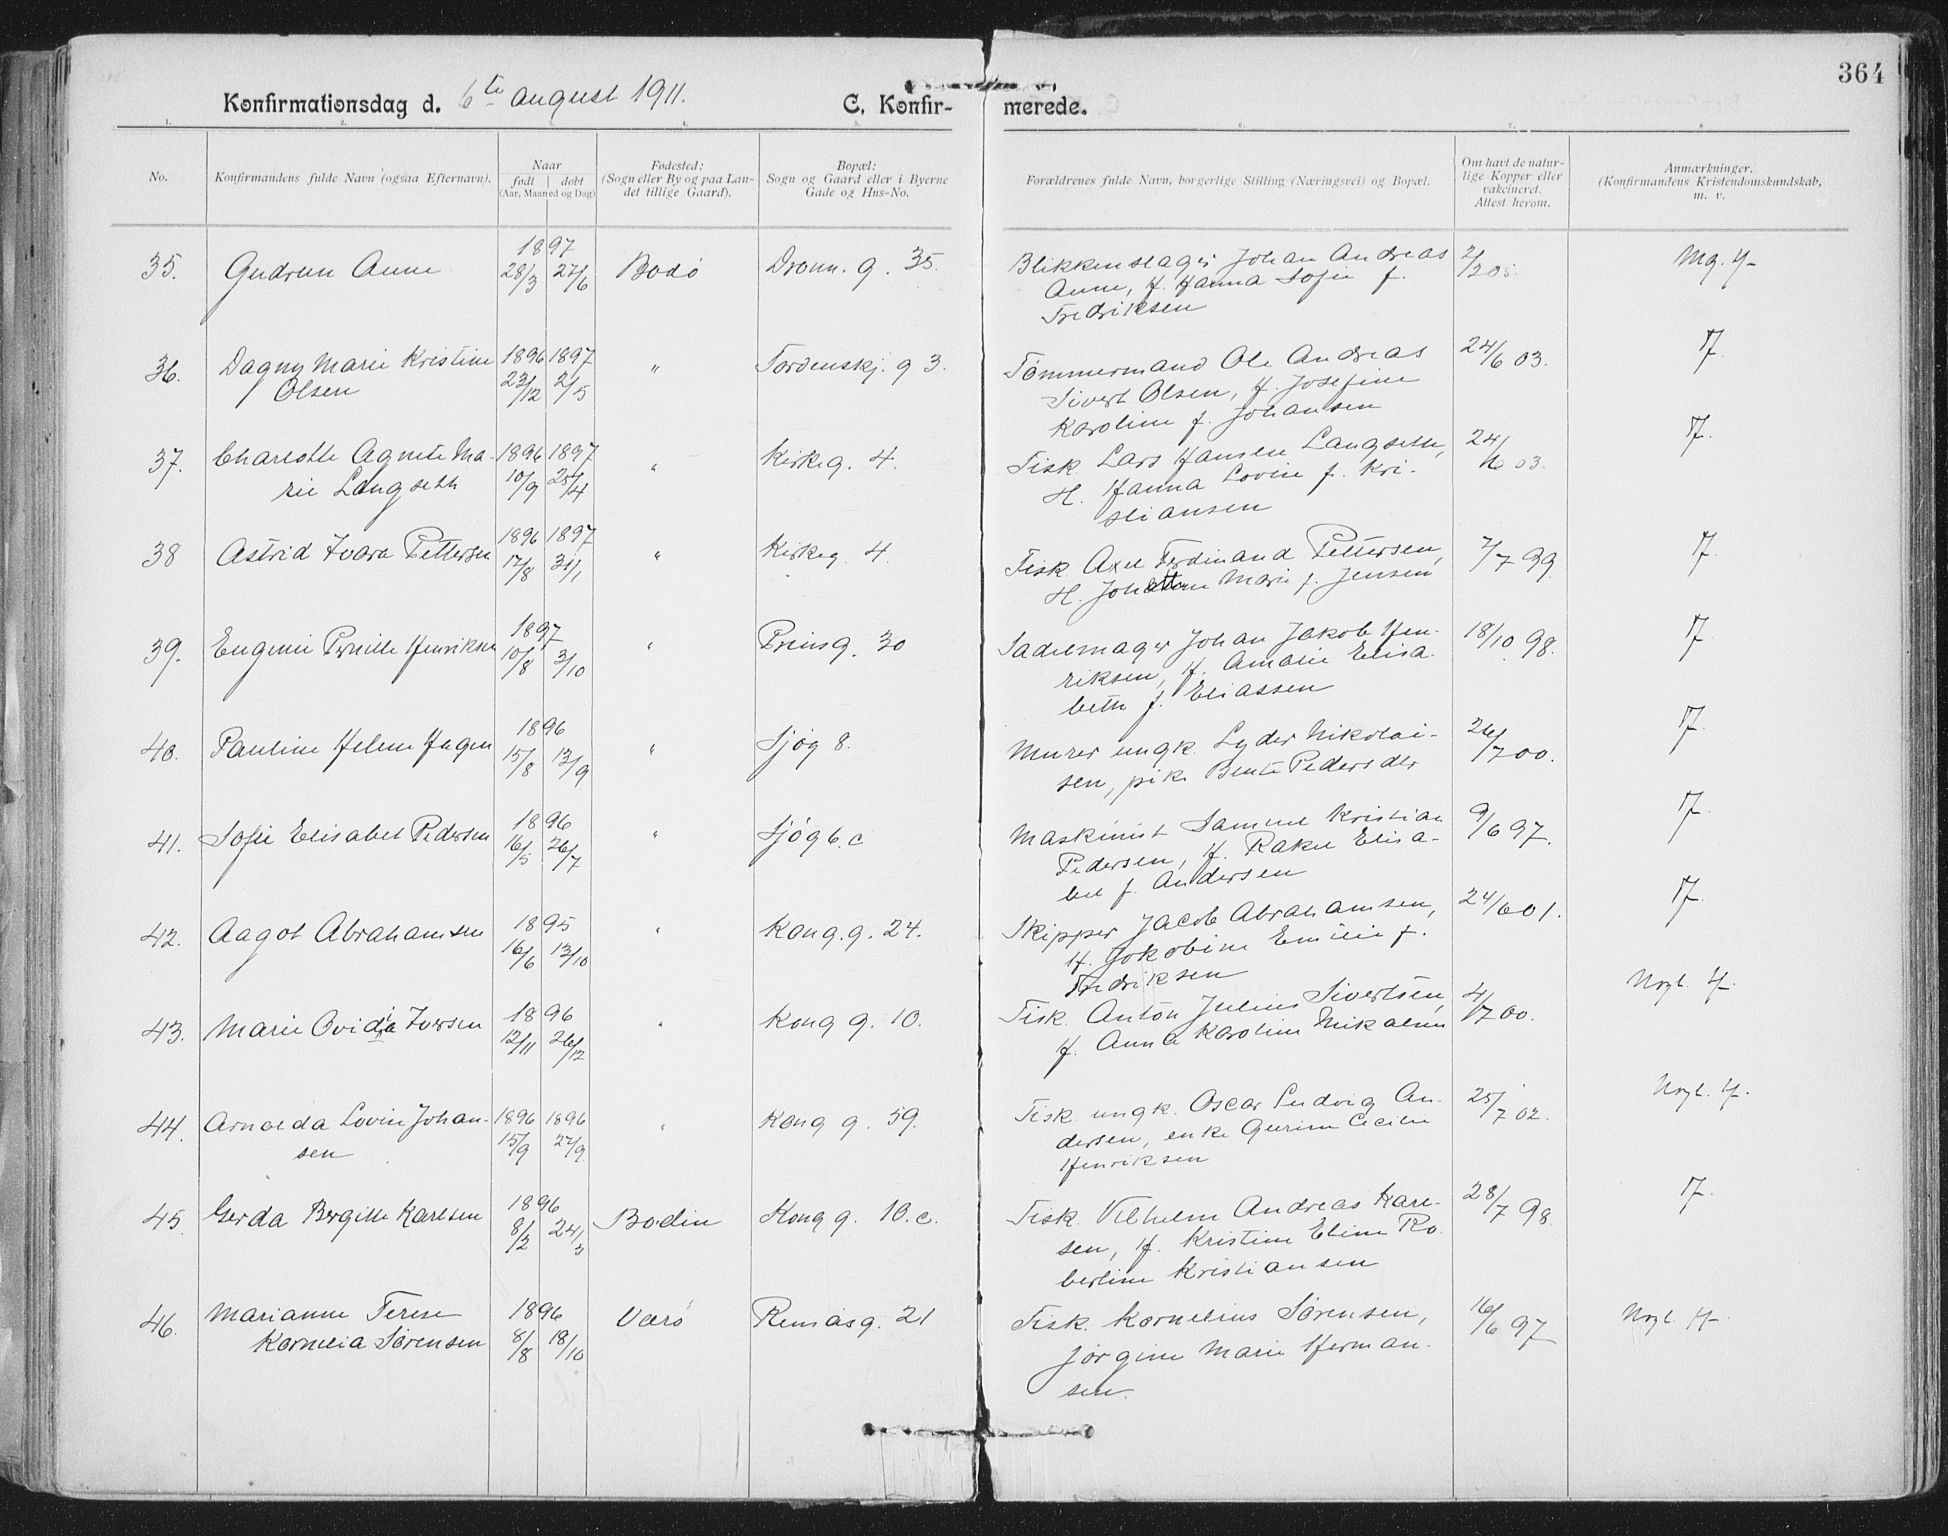 364
Konfirmationsdag d. 6te august 1911.
C. Konfirmerede.
1. 2. 3. 4. 5. 6. 7. 8
No.
Konfirmandens fulde Navn (ogsaa Efternavn).
Naar
født døbt
(Aar, Maaned og Dag)
Fødested:
(Sogn eller By og paa Lan-
det tillige Gaard).
Bopæl:
Sogn og Gaard eller i Byerne
Gade og Hus-No.
Forældrenes fulde Navn, borgerlige Stilling (Næringsvei) og Bopæl.
Om havt de natur-
lige Kopper eller
vakcineret.
Attest herom.
Anmærkninger.
(Konfirmandens Kristendomskundskab,
m. v.
35. Gudrun Anne 1897 28/3 27/6 Bodö Dronn. g. 35.
Blikkenslager Johan Andreas
Anne, H. Hanna Sofie f.
Fredriksen
Mg. H-
36. Dagny Marie Kristine
Olsen
1896 1897
23/12 2/5
" Tordenskj. g 3.
Tømmermand Ole Andreas
Sivert Olsen, H. Josefine
Karoline f. Johansen
24/6 03.
37. Charlotte Agnete Ma-
rie Langseth
1896 1897
10/9 25/4
" Kirkeg. 4.
Fisk. Lars Hansen Langseth,
H. Hanna Lovise f. Kri-
stiansen
24/6 03.
38 Astrid Ivara Pettersen
1896 1897
17/8 31/1
" Kirkeg. 4.
Fisk. Axel Ferdinand Pettersen,
H. Marie f. Jensen
7/7 99.
39. Eugenie Pernille Henriksen
1897
10/8 3/10
" Prinsg. 30
Sadelmager Johan Jakob Hen-
riksen, H. Amalie Elisa-
beth f. Eliassen
18/10 98.
40. Pauline Helene Hagen
1896
15/8 13/9
" Sjøg 8.
Murer ungk. Lyder Nikolai-
sen, pike Bente Pedersdtr
26/7 00.
41. Sofie Elisabet Pedersen
1896
16/5 26/7
" Sjøg 6. c
Maskinist Samuel Kristian
Pedersen, H. Rakel Elisa-
bet f. Andersen
9/6 97.
42. Aagot Abrahamsen
1895
16/6 13/10
" Kong. g. 24.
Skipper Jacob Abrahamsen,
H. Jakobine Emilie f.
Fredriksen
24/6 01.
43. Marie Ovidia Iversen
1896
12/11 26/12
" Kong g. 10.
Fisk. Anton Julius Sivertsen,
H. Anna Karoline Mikalsen
4/7 00.
Ngl. H-
44. Arnolda Lovise Johan-
sen
1896 1896
15/9 27/9
" Kong g. 59.
Fisk. ungk. Oscar Ludvig An-
dersen, enke Gurine Cecilie
Henriksen
25/7 02.
Ngl. H-
45. Gerda Bergitte Karlsen
1896
8/2 24/3
Bodin Kong g. 10. c.
Fisk. Vilhelm Andreas Karl-
sen, H. Kristine Eline Ro-
bertine Kristiansen
28/7 98
46. Marianne Terese
Kornelia Sørensen
1896
8/8 18/10
Værö Rensåsg. 21
Fisk. Kornelius Sørensen,
Jørgine Marie Herman-
sen.
16/6 97
Ngl. H-